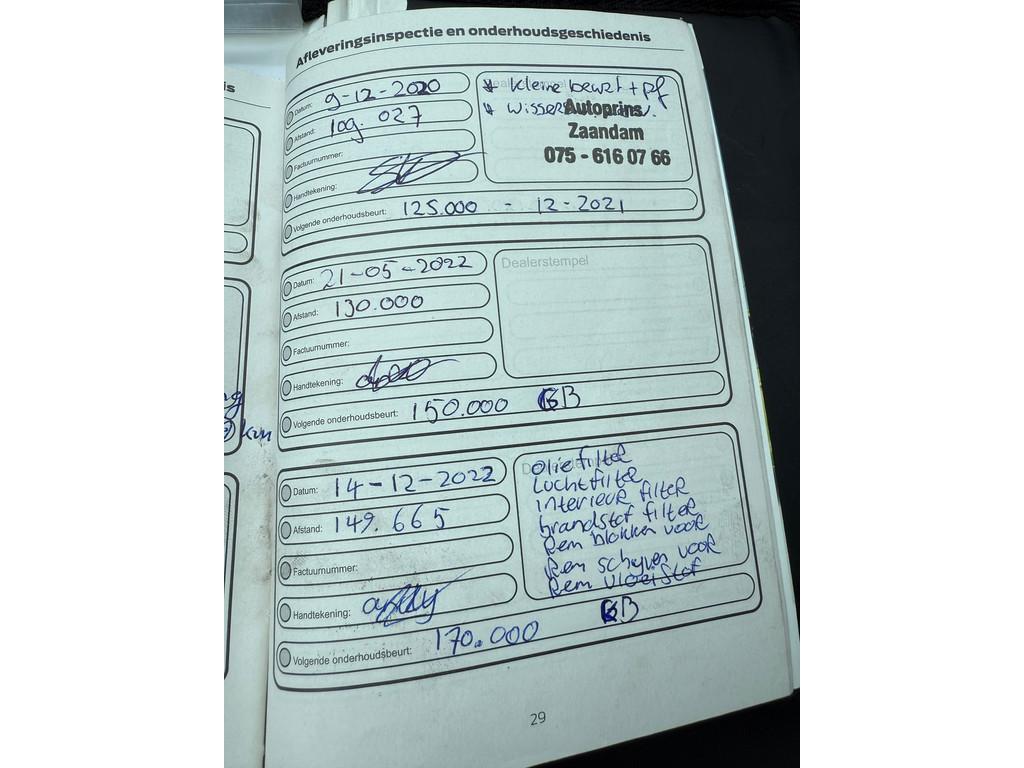 Afleveringsinspectie en onderhoudsgeschiedenis
is
Datum: 9-12-2020
Afstand: 109.027
Factuurnummer:
Handtekening:
Volgende onderhoudsbeurt: 125.000 - 12-2021
* kleine beurt + pf
Autoprins
Zaandam
075 - 616 07 66
Datum: 21-05-2022
Afstand: 130.000
Factuurnummer:
Handtekening:
Volgende onderhoudsbeurt: 150.000 GB
Dealerstempel
Datum: 14-12-2022
Afstand: 149.665
Factuurnummer:
Handtekening:
Volgende onderhoudsbeurt: 170.000 GB
Oliefilter
Luchtfilter
interieur filter
brandstof filter
Rem blokken voor
Rem schyven voor
Rem vloeistof
29